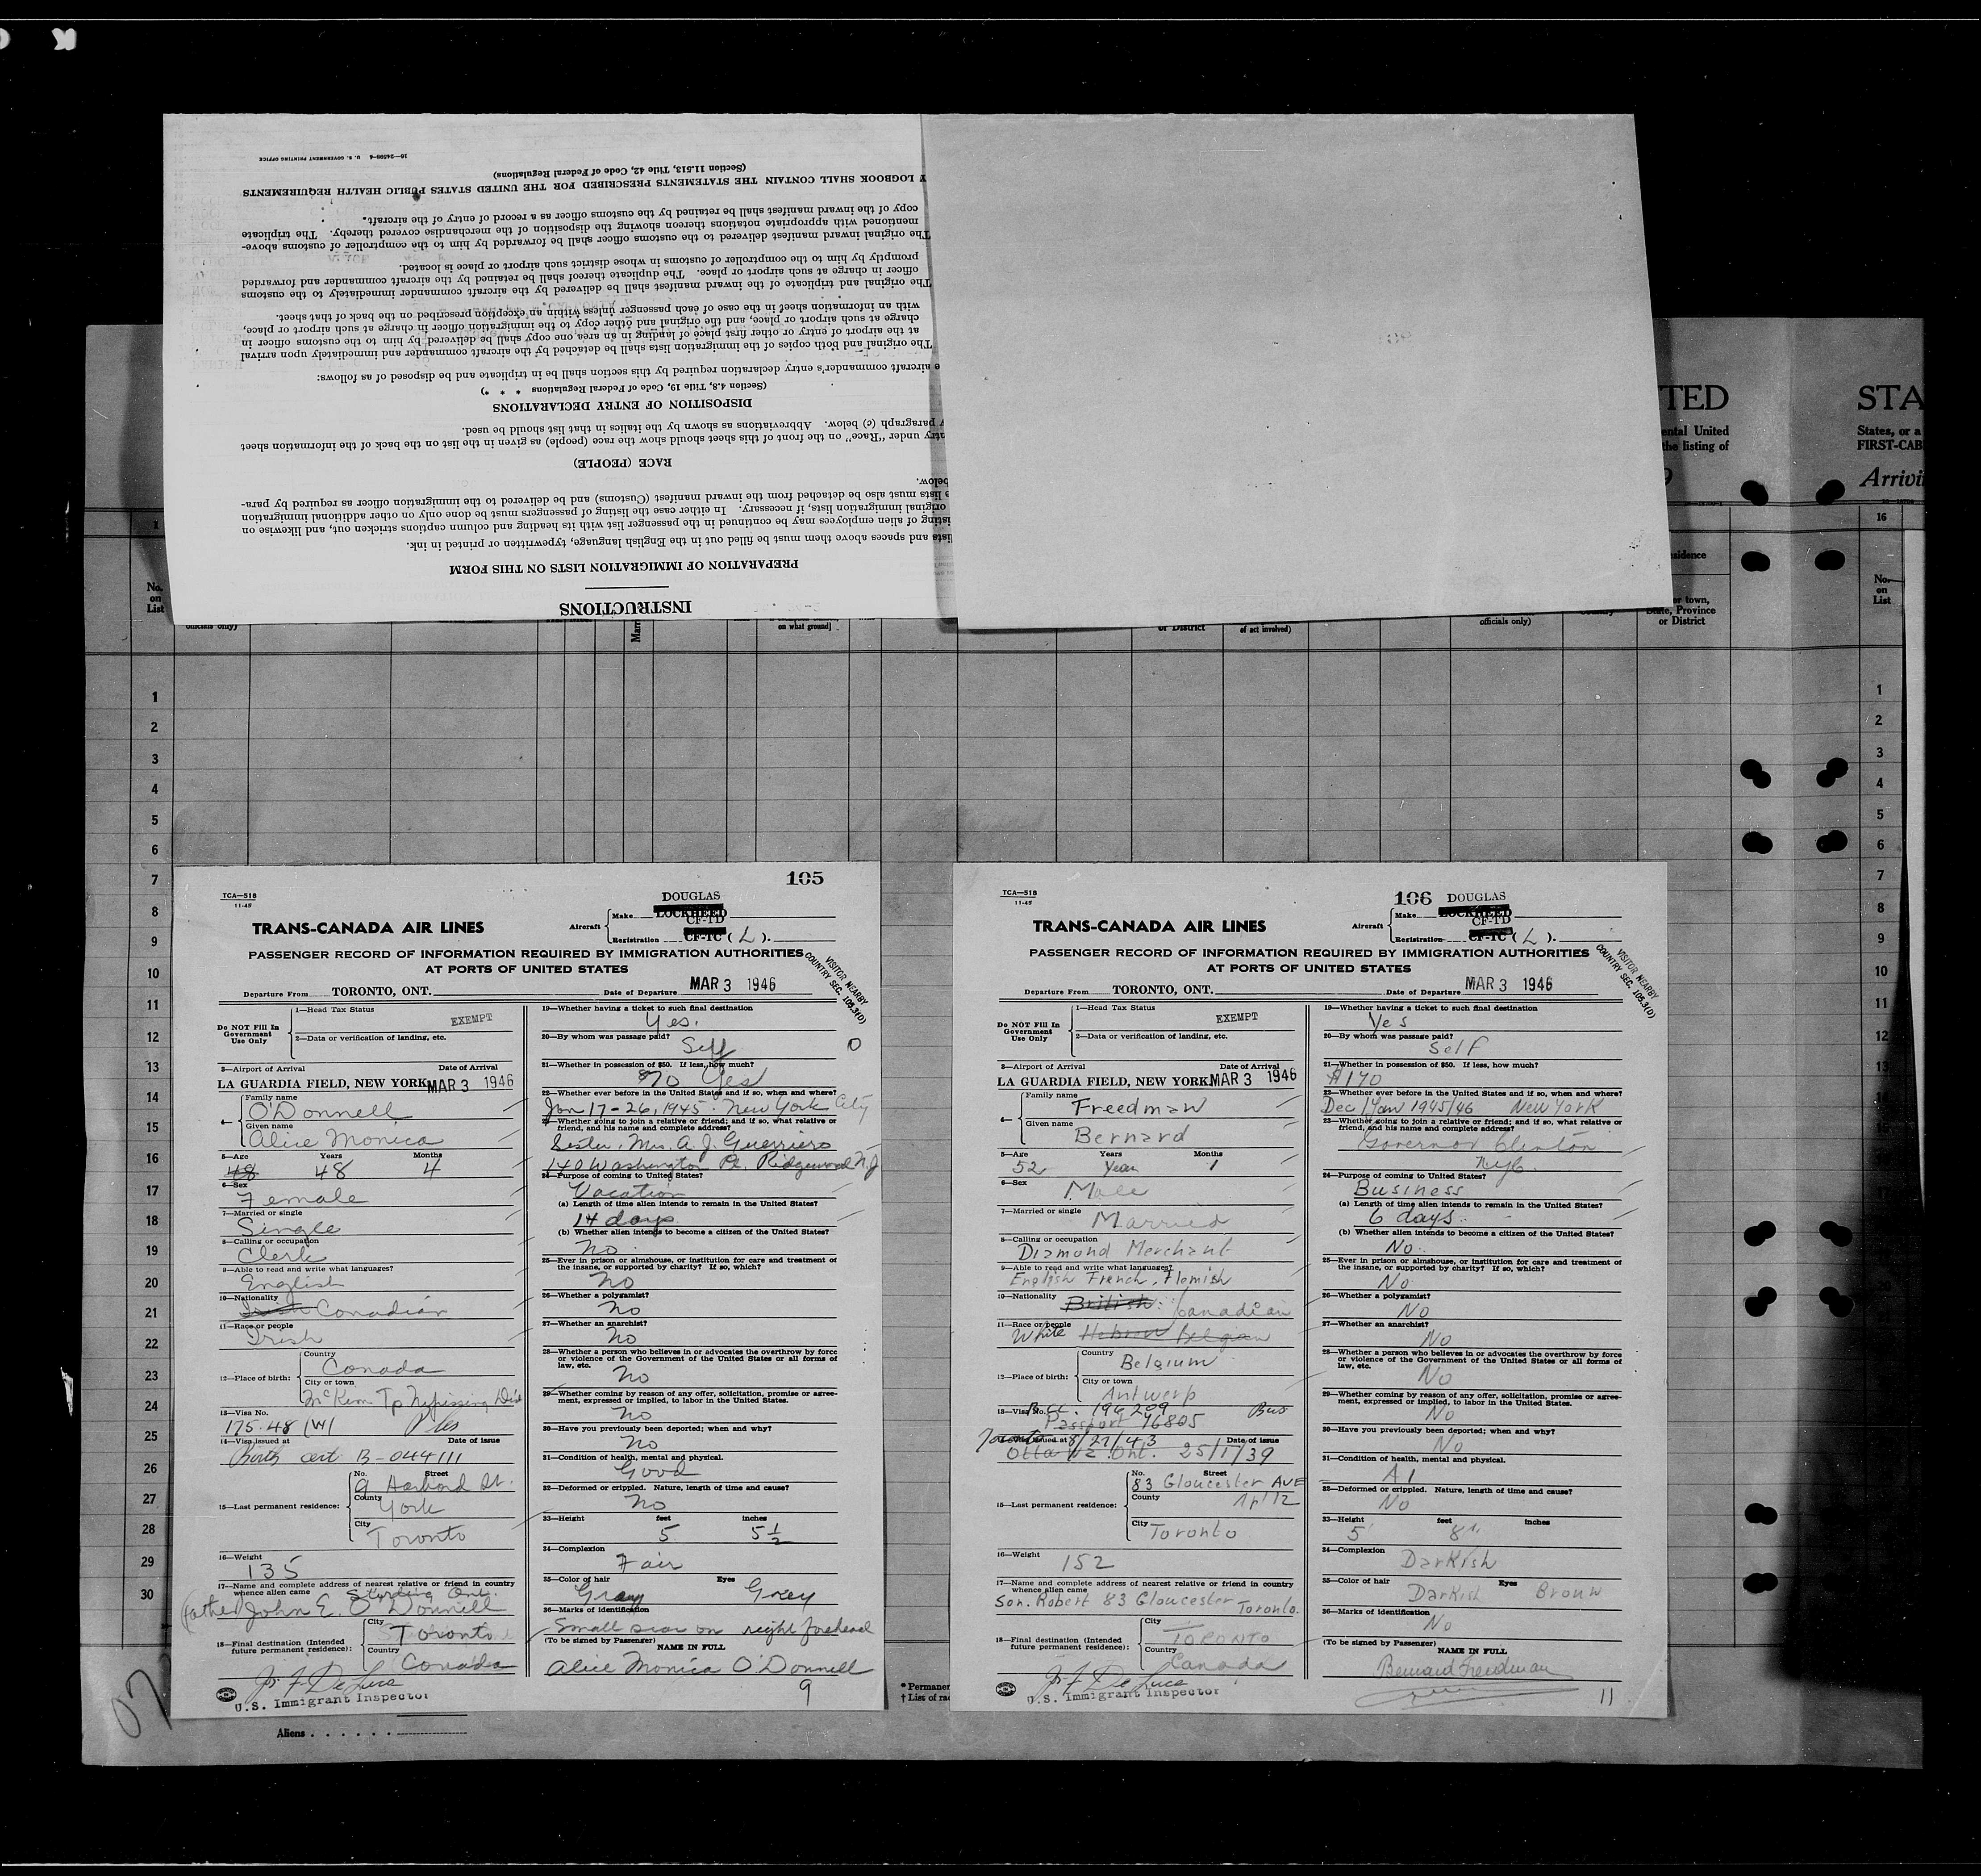 INSTRUCTIONS
PREPARATION OF IMMIGRATION LISTS ON THIS FORM
lists and spaces above them must be filled out in the English language, typewritten or printed in ink.
listing of alien employees may be continued in the passenger list with its heading and column captions stricken out, and likewise on
original immigration lists, if necessary. In either case the listing of passengers must be done only on other additional immigration
lists must also be detached from the inward manifest (Customs) and be delivered to the immigration officer as required by para-
below.
RACE (PEOPLE)
under "Race" on the front of this sheet should show the race (people) as given in the list on the back of the information sheet
paragraph (c) below. Abbreviations as shown by the italics in that list should be used.
DISPOSITION OF ENTRY DECLARATIONS
(Section 4.8, Title 19, Code of Federal Regulations * * *)
aircraft commander's entry declaration required by this section shall be in triplicate and be disposed of as follows:
The original and both copies of the immigration lists shall be detached by the aircraft commander and immediately upon arrival
at the airport of entry or other first place of landing in an area one copy shall be delivered by him to the customs officer in
charge at such airport or place, and the original and other copy to the immigration officer in charge at such airport or place,
with an information sheet in the case of each passenger unless within an exception prescribed on the back of that sheet.
The original and triplicate of the inward manifest shall be delivered by the aircraft commander immediately to the customs
officer in charge at such airport or place. The duplicate thereof shall be retained by the aircraft commander and forwarded
promptly by him to the comptroller of customs in whose district such airport or place is located.
The original inward manifest delivered to the customs officer shall be forwarded by him to the comptroller of customs above-
mentioned with appropriate notations thereon showing the disposition of the merchandise covered thereby. The triplicate
copy of the inward manifest shall be retained by the customs officer as a record of entry of the aircraft.
LOGBOOK SHALL CONTAIN THE STATEMENTS PRESCRIBED FOR THE UNITED STATES PUBLIC HEALTH REQUIREMENTS
(Section 11.513, Title 42, Code of Federal Regulations)
16—24508-4 U. S. GOVERNMENT PRINTING OFFICE
TED STA
ental United States, or a
the listing of FIRST-CAB
9 Arrivi
16
No. on List
officials only)
Marr
on what ground]
or District
of act involved)
officials only)
sidence
er town,
State, Province
or District
No. on List
1
2
3
4
5
6
7
8
9
10
11
12
13
14
15
16
17
18
19
20
21
22
23
24
25
26
27
28
29
30
105
TCA—518
11-45
TRANS-CANADA AIR LINES
Aircraft
Make DOUGLAS LOCKHEED
Registration CF-TD CF-TC (L).
PASSENGER RECORD OF INFORMATION REQUIRED BY IMMIGRATION AUTHORITIES
AT PORTS OF UNITED STATES
VISITOR NEARBY
COUNTRY SEC. 105.3(D)
Departure From TORONTO, ONT. Date of Departure MAR 3 1946
Do NOT Fill In Government Use Only
1—Head Tax Status EXEMPT
2—Data or verification of landing, etc.
3—Airport of Arrival Date of Arrival
LA GUARDIA FIELD, NEW YORK MAR 3 1946
4— Family name O'Donnell
Given name Alice Monica
5—Age Years Months
48 48 4
6—Sex
Female
7—Married or single
Single
8—Calling or occupation
Clerk
9—Able to read and write what languages?
English
10—Nationality
Irish Canadian
11—Race or people
Irish
12—Place of birth: Country Canada
City or town McKim Tp Nipissing Dist
13—Visa No.
175.48 (W)
14—Visa issued at Date of issue
Birth cert B-044111
15—Last permanent residence: No. Street 9 Harbord St.
County York
City Toronto
16—Weight
135
17—Name and complete address of nearest relative or friend in country
whence alien came
(father) John E. O'Donnell
18—Final destination (Intended future permanent residence): City Toronto
Country Canada
Jos. F. De Luca
U.S. Immigrant Inspector
19—Whether having a ticket to such final destination
Yes.
20—By whom was passage paid?
Self 0
21—Whether in possession of $50. If less, how much?
$70 Yes
22—Whether ever before in the United States and if so, when and where?
Jan 17-26, 1945. New York City
23—Whether going to join a relative or friend; and if so, what relative or
friend, and his name and complete address?
Sister, Mrs. A. J. Guerriero
140 Washington Pl. Ridgewood N.J
24—Purpose of coming to United States?
Vacation
(a) Length of time alien intends to remain in the United States?
14 days
(b) Whether alien intends to become a citizen of the United States?
No.
25—Ever in prison or almshouse, or institution for care and treatment of
the insane, or supported by charity? If so, which?
No
26—Whether a polygamist?
No
27—Whether an anarchist?
No
28—Whether a person who believes in or advocates the overthrow by force
or violence of the Government of the United States or all forms of
law, etc.
No
29—Whether coming by reason of any offer, solicitation, promise or agree-
ment, expressed or implied, to labor in the United States.
No
30—Have you previously been deported; when and why?
No
31—Condition of health, mental and physical.
Good
32—Deformed or crippled. Nature, length of time and cause?
No
33—Height feet inches
5 5 1/2
34—Complexion
Fair
35—Color of hair Eyes
Gray Grey
36—Marks of identification
Small scar on right forehead
(To be signed by Passenger) NAME IN FULL
Alice Monica O'Donnell
9
Aliens
106
TCA—518
11-45
TRANS-CANADA AIR LINES
Aircraft
Make DOUGLAS LOCKHEED
Registration CF-TD CF-TC (L).
PASSENGER RECORD OF INFORMATION REQUIRED BY IMMIGRATION AUTHORITIES
AT PORTS OF UNITED STATES
VISITOR NEARBY
COUNTRY SEC. 105.3(D)
Departure From TORONTO, ONT. Date of Departure MAR 3 1946
Do NOT Fill In Government Use Only
1—Head Tax Status EXEMPT
2—Data or verification of landing, etc.
3—Airport of Arrival Date of Arrival
LA GUARDIA FIELD, NEW YORK MAR 3 1946
4— Family name Freedman
Given name Bernard
5—Age Years Months
52 Year 1
6—Sex
Male
7—Married or single
Married
8—Calling or occupation
Diamond Merchant
9—Able to read and write what languages?
English French, Flemish
10—Nationality
British: Canadian
11—Race or people
White Hebrew Belgian
12—Place of birth: Country Belgium
City or town Antwerp
13—Visa No. 196209 Bus
Passport 46805
14—Visa issued at 8/27/43 Date of issue
Ottawa Ont. 25/1/39
15—Last permanent residence: No. Street 83 Gloucester AVE
County Apt 12
City Toronto
16—Weight
152
17—Name and complete address of nearest relative or friend in country
whence alien came
Son. Robert 83 Gloucester Toronto.
18—Final destination (Intended future permanent residence): City TORONTO
Country Canada
Jos. F. De Luca
U.S. Immigrant Inspector
19—Whether having a ticket to such final destination
Yes
20—By whom was passage paid?
Self
21—Whether in possession of $50. If less, how much?
$170
22—Whether ever before in the United States and if so, when and where?
Dec/Jan 1945/46 New York
23—Whether going to join a relative or friend; and if so, what relative or
friend, and his name and complete address?
Governor Clinton
NYC.
24—Purpose of coming to United States?
Business
(a) Length of time alien intends to remain in the United States?
6 days.
(b) Whether alien intends to become a citizen of the United States?
No.
25—Ever in prison or almshouse, or institution for care and treatment of
the insane, or supported by charity? If so, which?
No
26—Whether a polygamist?
No
27—Whether an anarchist?
No
28—Whether a person who believes in or advocates the overthrow by force
or violence of the Government of the United States or all forms of
law, etc.
No
29—Whether coming by reason of any offer, solicitation, promise or agree-
ment, expressed or implied, to labor in the United States.
No
30—Have you previously been deported; when and why?
No
31—Condition of health, mental and physical.
A1
32—Deformed or crippled. Nature, length of time and cause?
No
33—Height feet inches
5' 8"
34—Complexion
Darkish
35—Color of hair Eyes
Darkish Brown
36—Marks of identification
No
(To be signed by Passenger) NAME IN FULL
Bernard Freedman
11
* Permanen
† List of rac